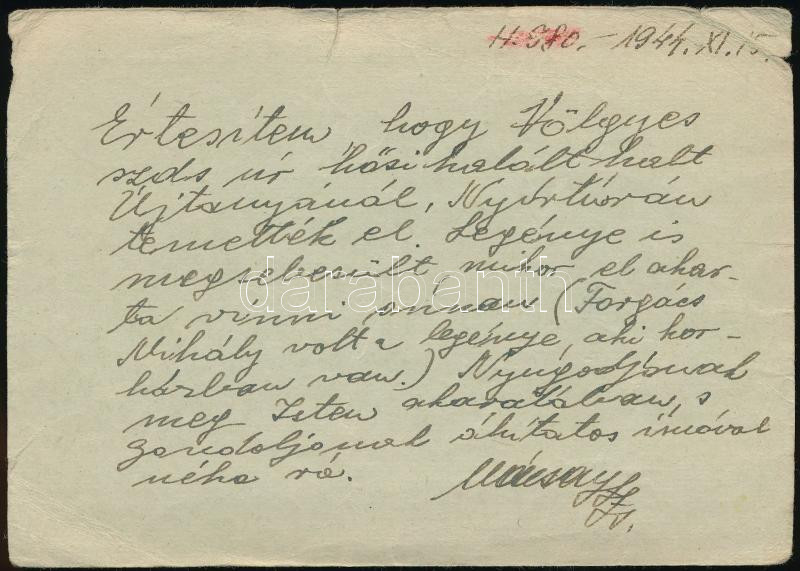 H. 980. – 1944. XI. 15.
Értesítem hogy Völgyes
szds úr hősi halált halt
Újtanyánál, Nyírtúrán
temették el. Legénye is
megsebesült mikor el akar-
ta vinni onnan (Forgács
Mihály volt a legénye, aki kór-
házban van.) Nyúgodjanak
meg Isten akaratában, s
gondoljanak áhítatos imával
néha rá.
darabanth